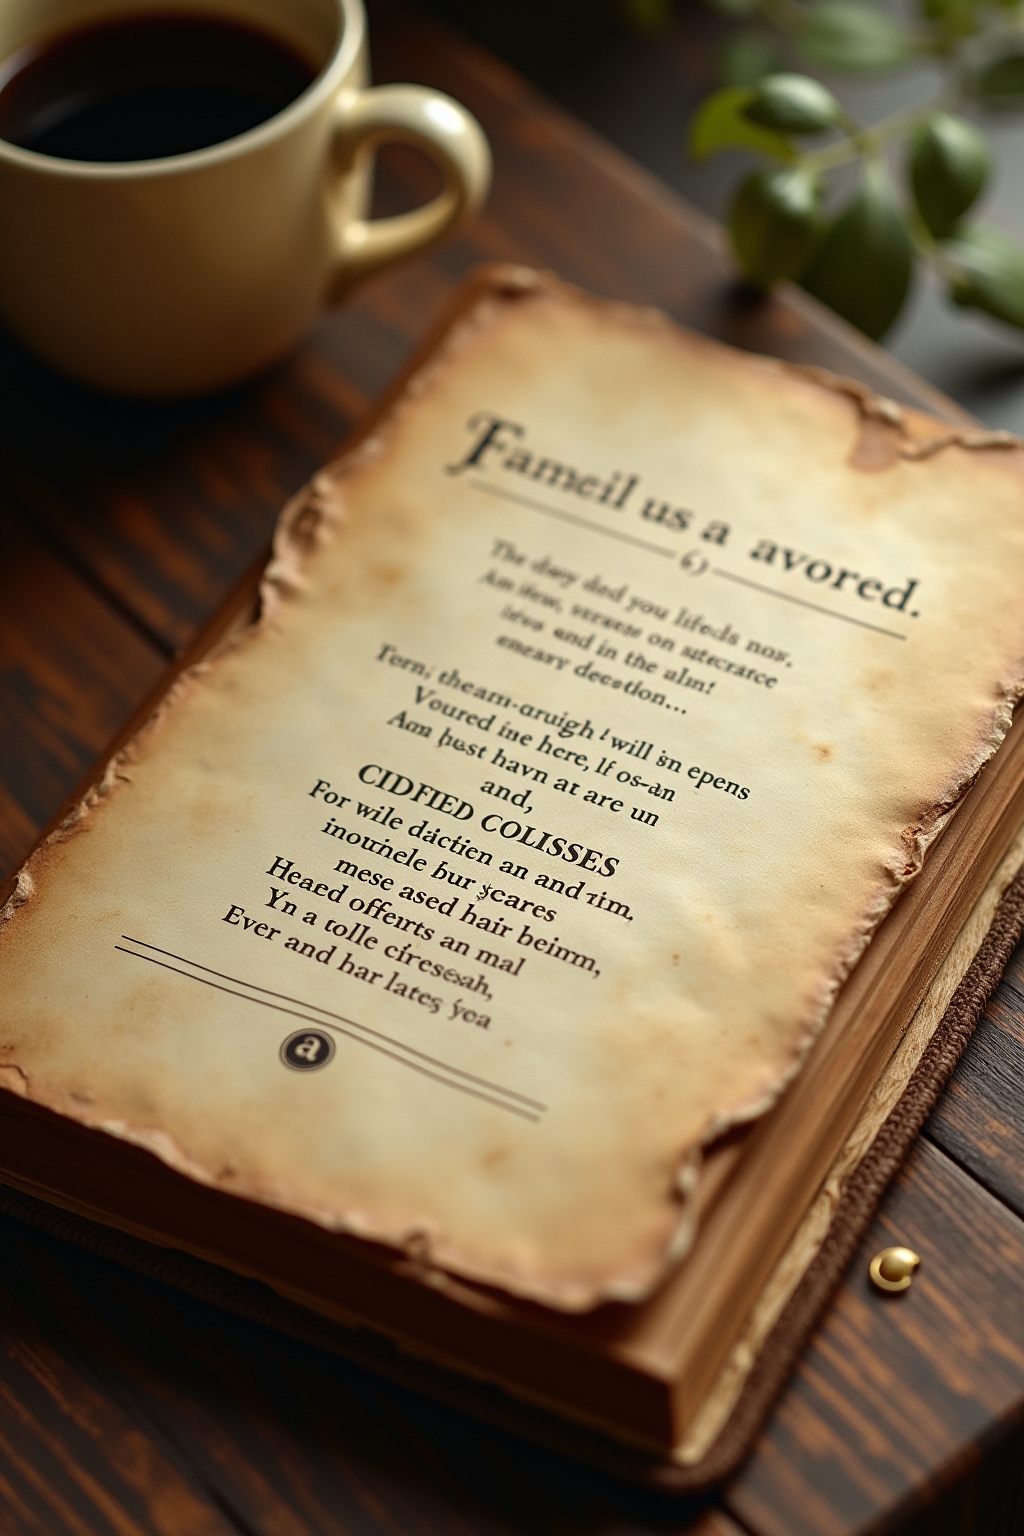 Fameil us a avored.
The dary dad you lifeds now,
Am itew, on satecrarce
and in the alm!
eneasy deestion...
Tern, thearn-aruigh I will in epens
Voured ine here, If os-an
Am hust havn at are un
and,
CIDFIED COLISSES
For wile dictien an and rim.
inourhele bur scares
mese ased hair beinm,
Heaed offerrts an mal
Yn a tolle ciresesah,
Ever and har lates yea
a